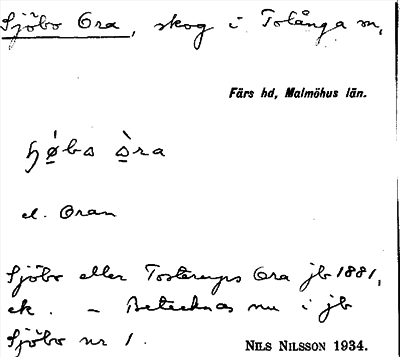 Sjöbo Ora, skog i Tolånga sn,
Färs hd, Malmöhus län.
el. Oran
Sjöbo eller Tosterups Ora jb 1881,
ek. – Betecknas nu i jb
Sjöbo nr 1.
NILS NILSSON 1934.